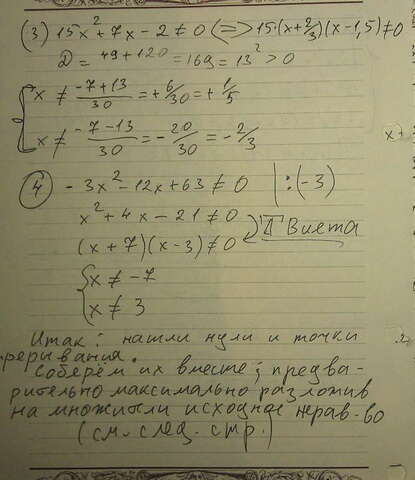 (3) 15x² + 7x - 2 ≠ 0 (=> 15·(x+2/3)(x-1,5) ≠ 0
D = 49+120 = 169 = 13² > 0
{ x ≠ (-7+13)/30 = +6/30 = +1/5
x ≠ (-7-13)/30 = -20/30 = -2/3
x +
(4) -3x² - 12x + 63 ≠ 0 | :(-3)
x² + 4x - 21 ≠ 0
(x+7)(x-3) ≠ 0 Т Виета
{ x ≠ -7
x ≠ 3
Итак: нашли нули и точки
рерывания.
Соберём их вместе; предва-
рительно максимально разложив
на множители исходное нерав-во
(см. след. стр.)